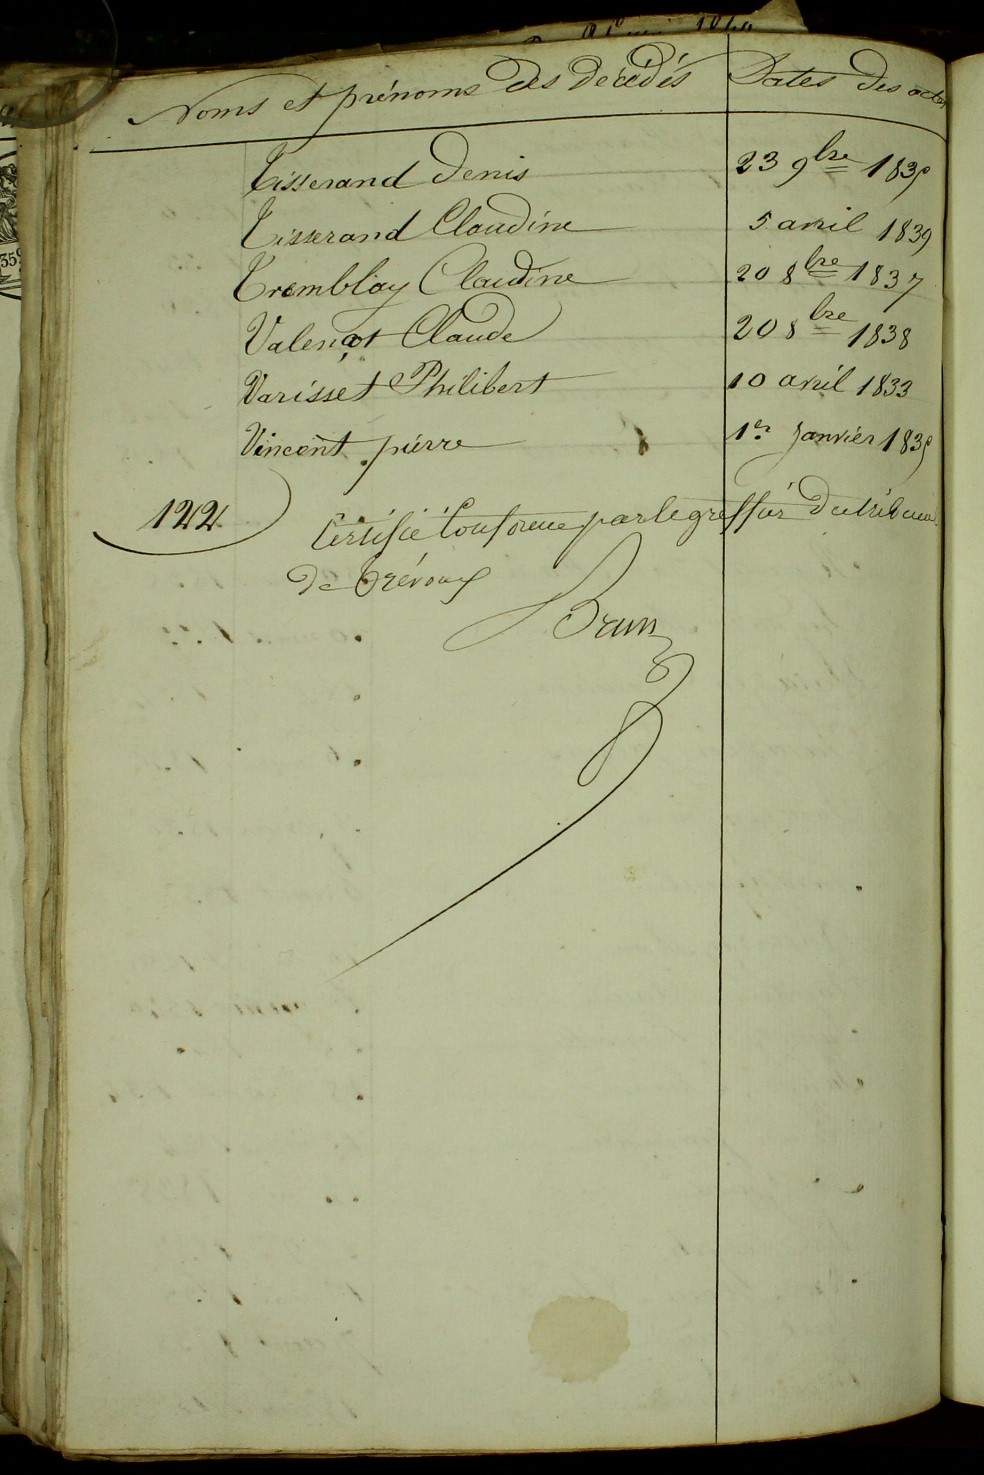 Noms et prénoms des Décédés Dates des actes
Tisserand Denis 23 9bre
Tisserand Claudine 5 avril 1839
Tremblay Claudine 20 8bre 1837
Valençot Claude 20 8bre 1838
Varisset Philibert 10 avril 1833
Vincent pierre 1er Janvier
122 Certifié Conforme par le greffier du tribunal
de Trévoux
Brun